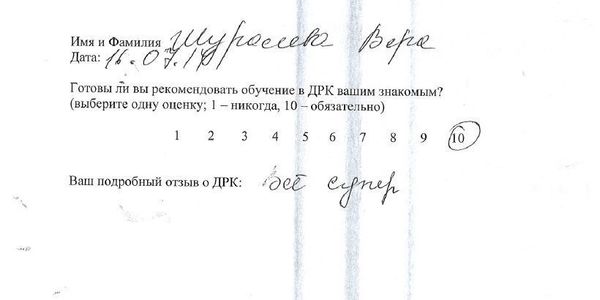 Имя и Фамилия Журавлева Вера
Дата: 16.07.19
Готовы ли вы рекомендовать обучение в ДРК вашим знакомым?
(выберите одну оценку; 1 – никогда, 10 – обязательно)
1 2 3 4 5 6 7 8 9 10
Ваш подробный отзыв о ДРК: Всё супер